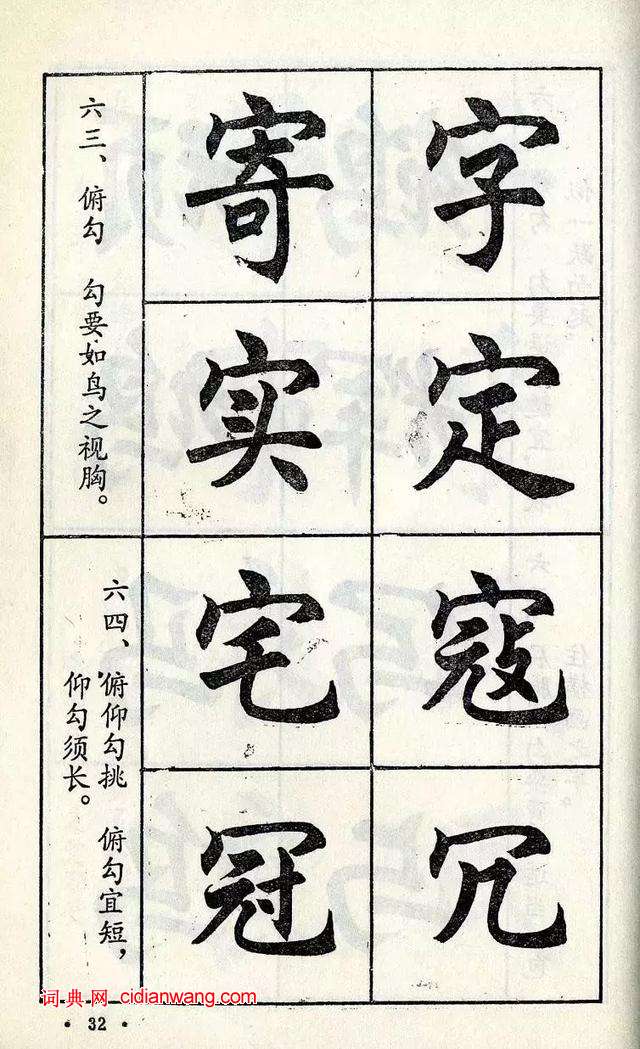 字
定
寄
实
六三、俯勾 勾要如鸟之视胸。
寇
冗
宅
冠
六四、俯仰勾挑 俯勾宜短，
仰勾须长。
词典网 cidianwang.com
·32·